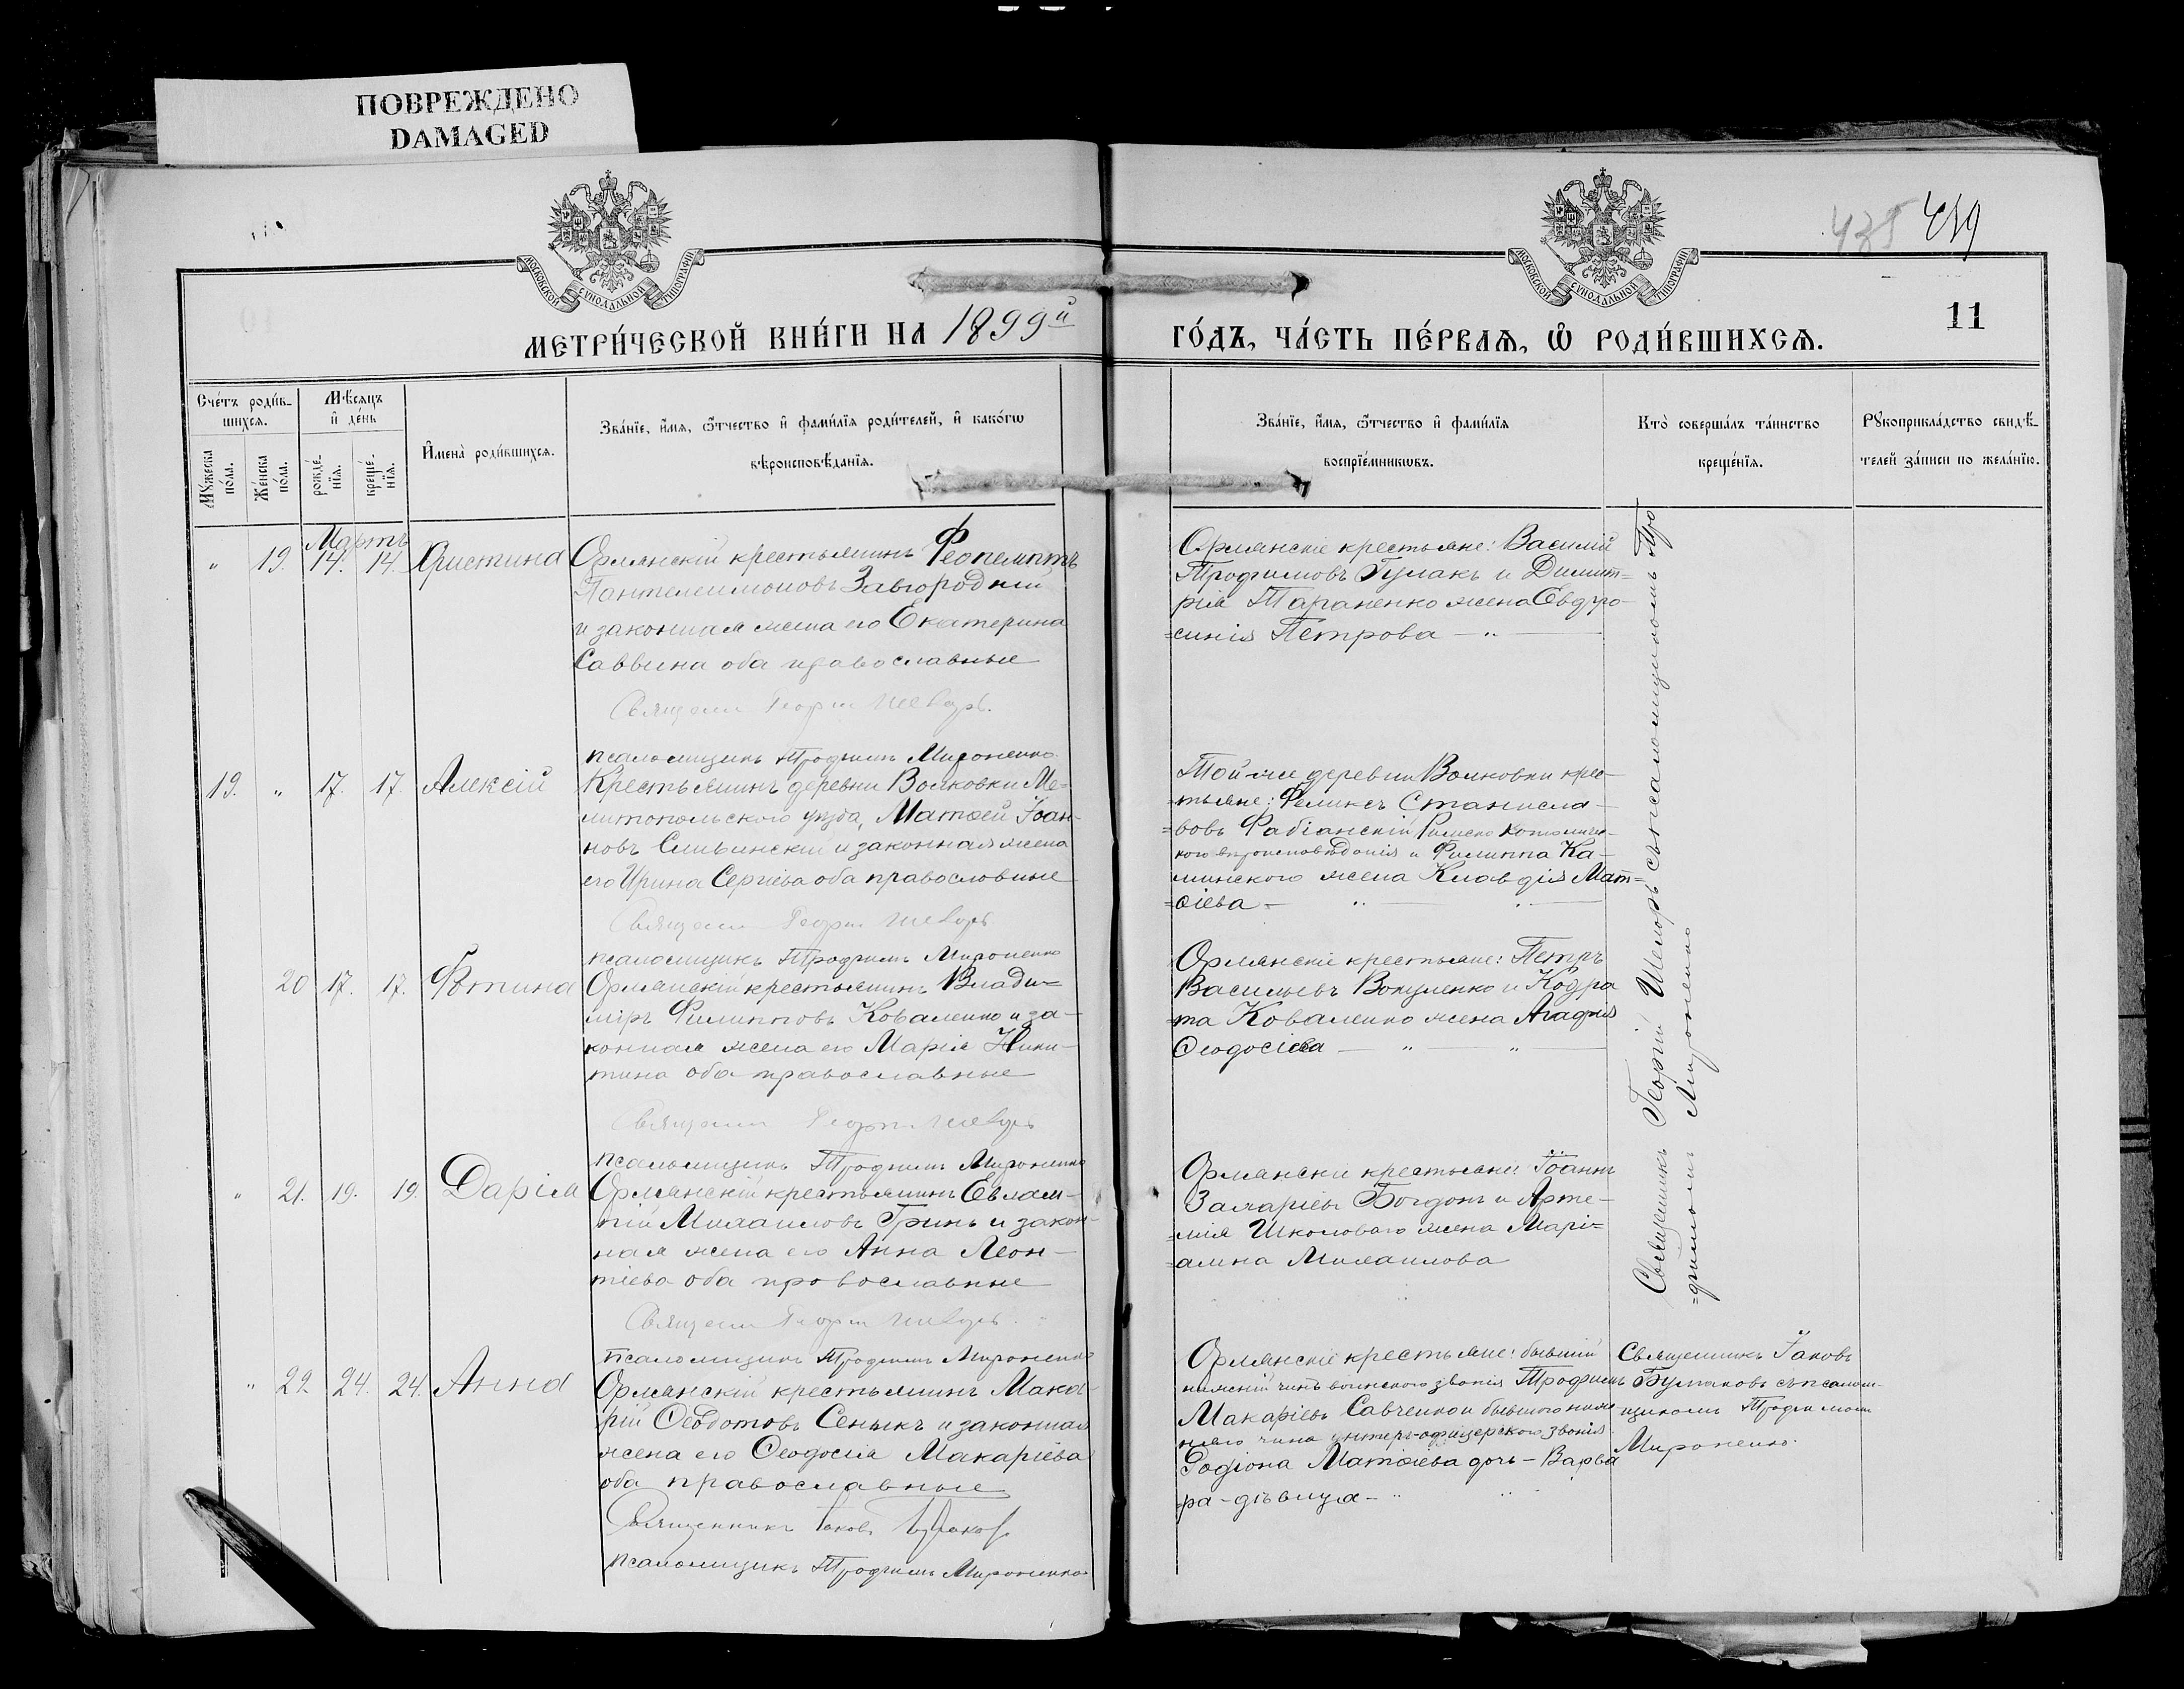 ПОВРЕЖДЕНО
DAMAGED
МОСКОВСКОЙ СѴНОДАЛЬНОЙ ТИПОГРАФІИ
МОСКОВСКОЙ СѴНОДАЛЬНОЙ ТИПОГРАФІИ
435 419
11
МЕТРИ́ЧЕСКОЙ КНИ́ГИ НА 1899й
ГО́ДЪ, ЧА́СТЬ ПЕ́РВАѦ, Ѡ РОДИ́ВШИХСѦ.
Сче́тъ роди́в-
шихсѧ.
Мѣ́сѧцъ
и҆ де́нь
Мꙋ́жеска
по́ла.
Же́нска
по́ла.
рожде́-
нїѧ.
креще́-
нїѧ.
И҆мена̀ роди́вшихсѧ.
Зва́нїе, и҆́мѧ, ѻ҆́тчество и҆ фами́лїѧ роди́телей, и҆ како́гѡ
вѣроисповѣ́данїѧ.
Зва́нїе, и҆́мѧ, ѻ҆́тчество и҆ фами́лїѧ
воспрїе́мникѡвъ.
Кто̀ соверша́лъ та́инство
креще́нїѧ.
Рꙋкоприкла́дство свидѣ́-
телей за́писи по жела́нїю.
Мартъ
" 19. 14. 14. Христина
Орлянскій крестьянинъ Феопемптъ
Пантелеимоновъ Завгородній
и законная жена его Екатерина
Саввина оба православные
Священ Георгій Шеворъ.
псаломщикъ Трофимъ Мироненко
Орлянскіе крестьяне: Василій
Трофимовъ Гулакъ и Димит=
рія Тараненко жена Евфро-
=синія Петрова — " —
19. " 17. 17. Алексій
Крестьянинъ деревни Волковки Ме=
литопольскаго уѣзда, Матѳей Іоан-
новъ и законная жена
его Ирина Сергіева оба православные
Священ Георгій Шеворъ
псаломщикъ Трофимъ Мироненко
Той-же деревни Волковки крес-
=тьяне: Феликсъ Станисла-
=вовъ Фабіанскій Римско Католичес-
каго вѣроисповѣданія и Филиппа Ка-
минскаго жена Клавдія Мат=
=ѳіева — " — " —
20 17. 17. Фотина
Орлянскій крестьянинъ Влади=
міръ Филипповъ Коваленко и за-
конная жена его Марія Ники-
тина оба православные
Священ Георгій Шеворъ
псаломщикъ Трофимъ Мироненко
Орлянскіе крестьяне: Петръ
Васильевъ Вакуленко и Кодра
=та Коваленко жена Агафія
Ѳеодосіева — " — " —
" 21. 19. 19. Дарія
Орлянскій крестьянинъ Евлам-
пій Михаиловъ Гринь и закон-
ная жена его Анна Леон-
тіева оба православные
Священ Георгій Шеворъ.
псаломщикъ Трофимъ Мироненко
Орлянскіе крестьяне: Іоаннъ
Захаріевъ Богданъ и Арте-
=мія Школоваго жена Марі=
=амна Михаилова
Священникъ Георгій Шеворъ съ псаломщикомъ Тро
=фимомъ Мироненко
" 22 24. 24. Анна
Орлянскій крестьянинъ Мака-
рій Ѳеодотовъ Сенькъ и законная
жена его Ѳеодосія Макаріева
оба православные
Священникъ Іаковъ Булаковъ
псаломщикъ Трофимъ Мироненко
Орлянскіе крестьяне: бывшій
нижній чинъ воинскаго званія Трофимъ
Макаріевъ Савченко и бывшаго ниж
няго чина унтеръ-офицерскаго званія
Родіона Матѳіева дочь - Варва
=ра-дѣвица — "
Священникъ Іаковъ
Булаковъ съ псалом-
щикомъ Трофимомъ
Мироненко.